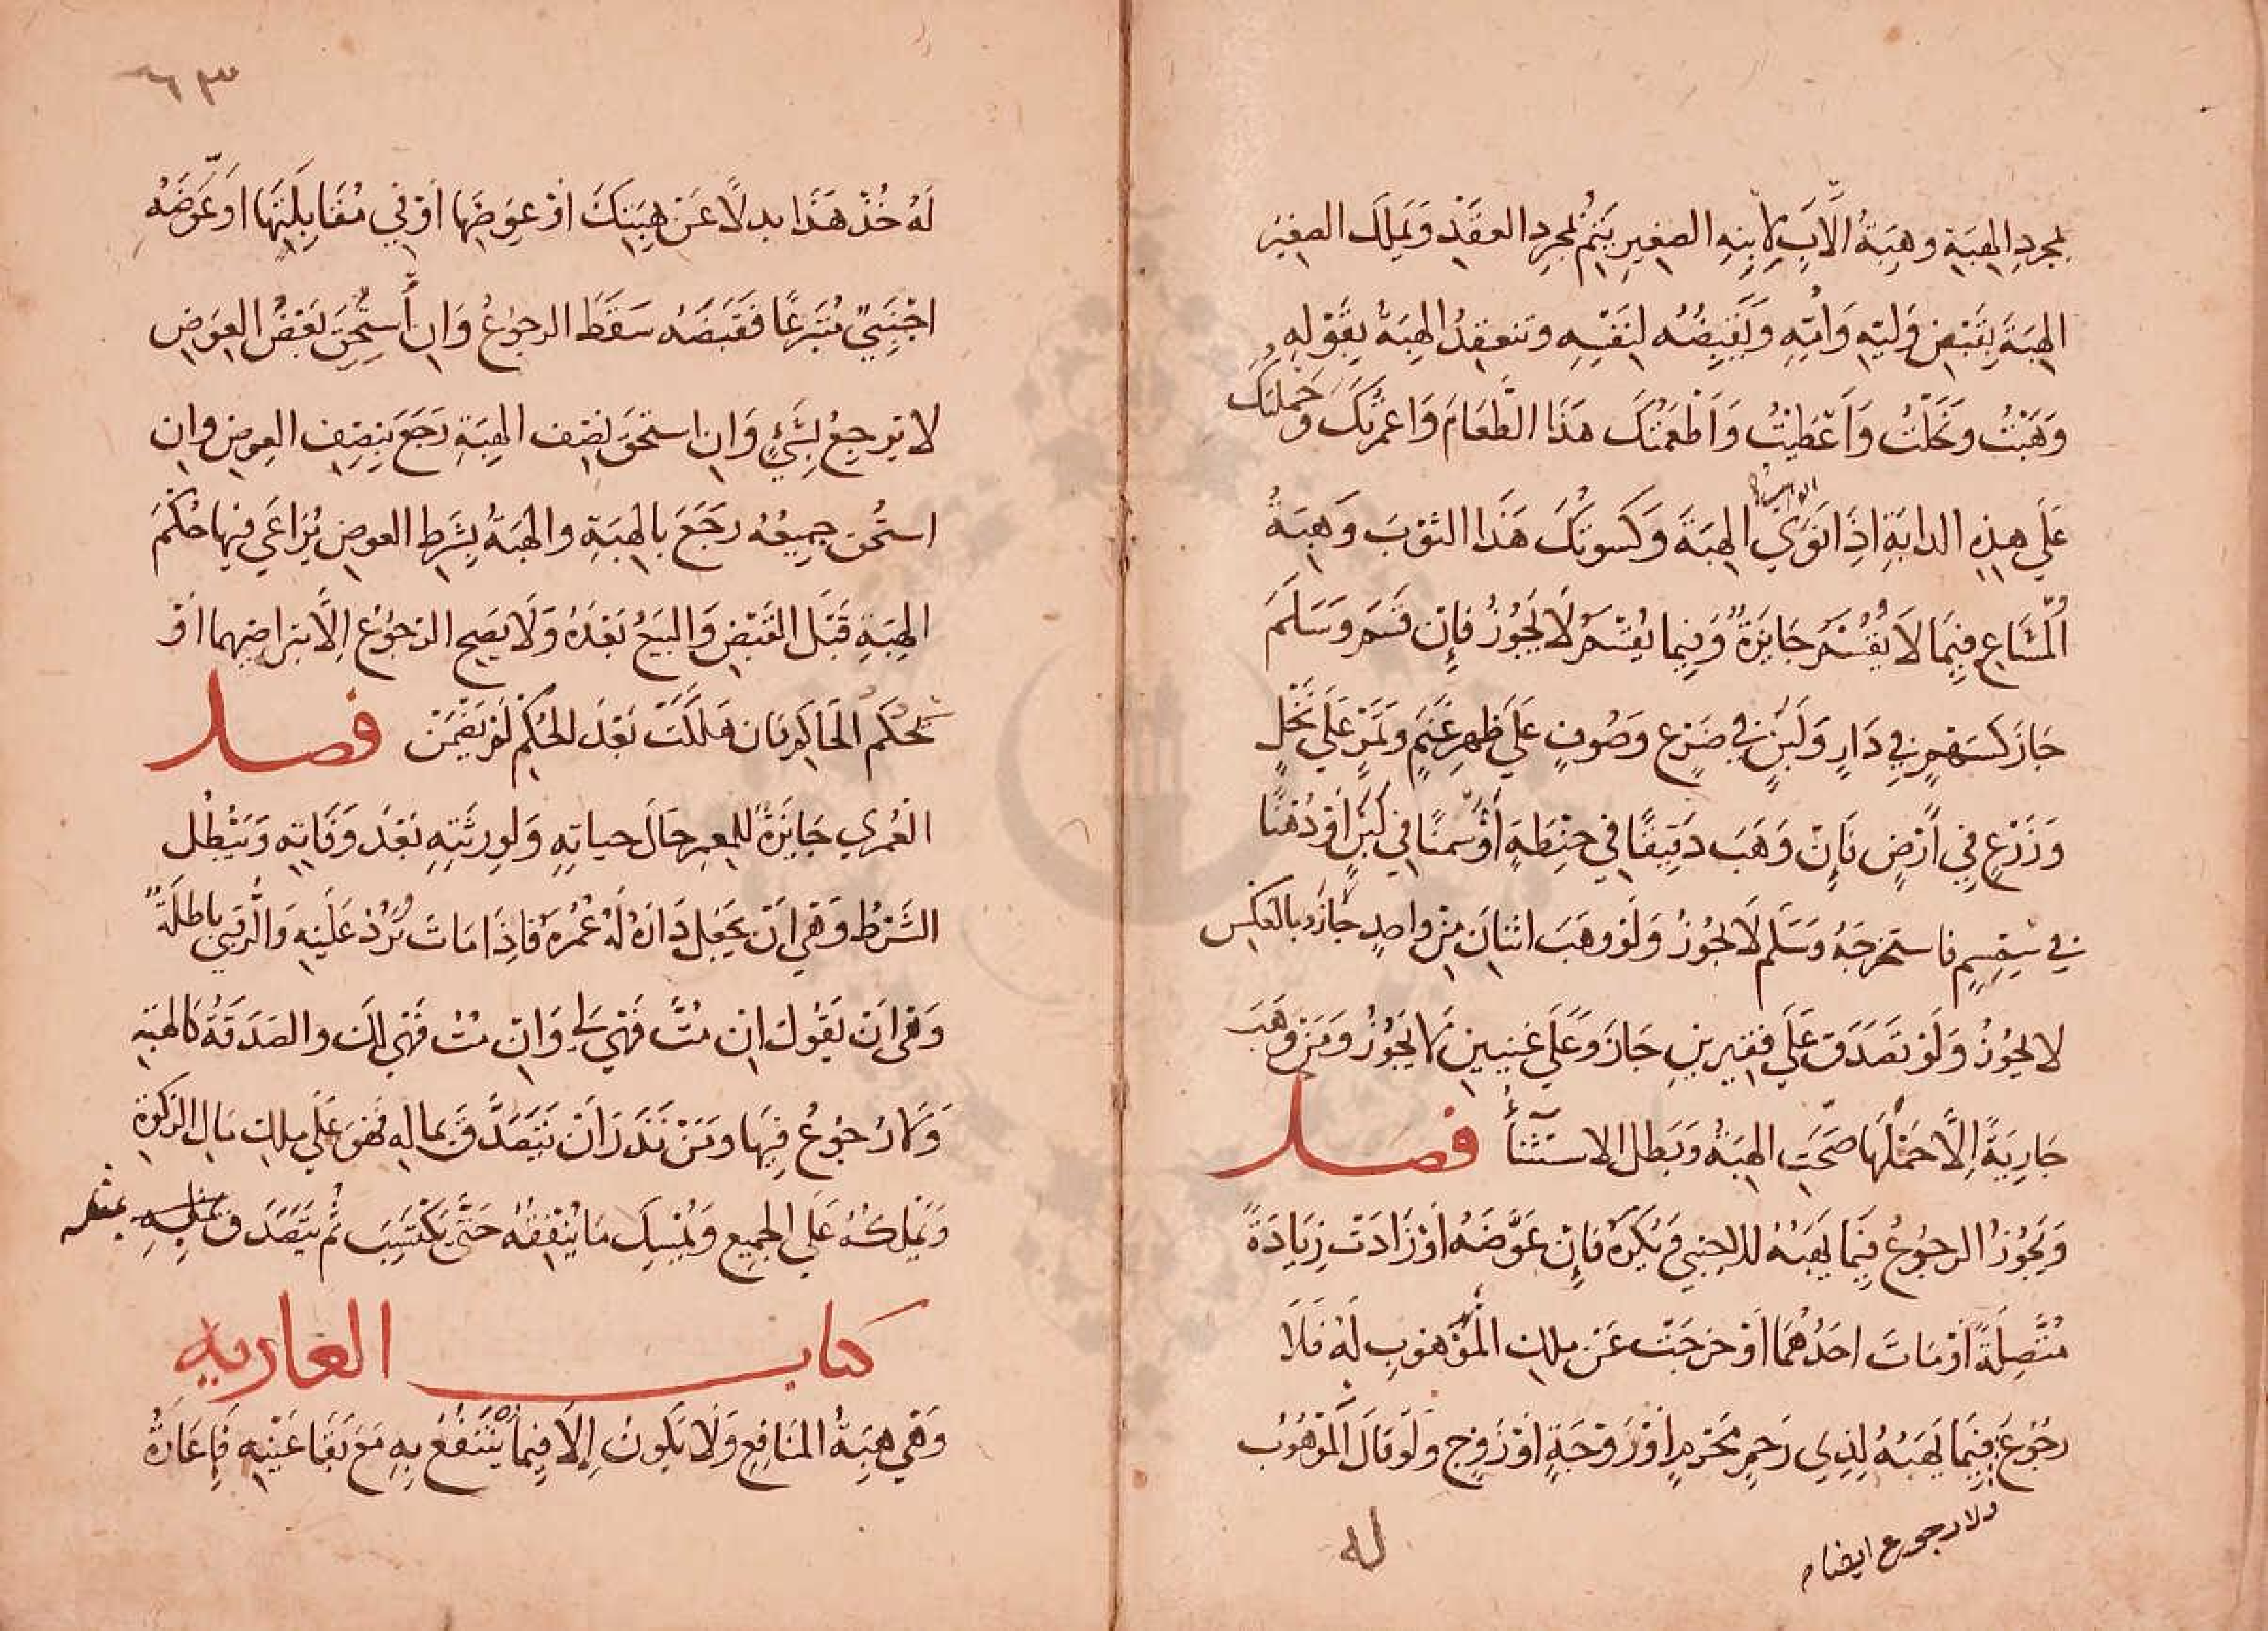 بمجرد الهبة وهبة الأب لابنه الصغير يتم بمجرد العقد ويملك الصغير
الهبة بقبض وليه وامه وبقبضه لنفسه وتنعقد الهبة بقوله
وهبت ونحلت واعطيت واطعمتك هذا الطعام واعمرتك وحملتك
علي هذه الدابة اذا نوي الهبة وكسوتك هذا الثوب وهبة
المشاع فيما لا يقسم جايزة وفيما يقسم لا يجوز فإن قسم وسلم
جاز كسهم في دار ولبن في ضرع وصوف علي ظهر غنم وتمر علي نخل
وزرع في أرض فإن وهب دقيقا في حنطة أو سمنا في لبن أو دهنا
في سمسم فاستخرجه وسلم لا يجوز ولو وهب اثنان من واحد جاز وبالعكس
لا يجوز ولو تصدق علي فقيرين جاز وعلي غنيين لا يجوز ومن وهب
جارية إلا حملها صحت الهبة وبطل الاستثنأ فصل
ويجوز الرجوع فيما يهبه للاجنبي ويكره فإن عوضه أو زادت زيادة
متصلة أو مات احدهما أو خرجت عن ملك الموهوب له فلا
رجوع فيما يهبه لذي رحم محرم أو زوجة أو زوج ولو قال الموهوب
ولا رجوع ايضا
له
٦٣
له خذ هذا بدلا عن هبتك أو عوضها أو في مقابلتها أو عوضه
اجنبي متبرعا فقبضه سقط الرجوع وان استحق بعض العوض
لا يرجع بشيء وان استحق نصف الهبة رجع بنصف العوض وان
استحق جميعه رجع بالهبة والهبة بشرط العوض يراعي فيها حكم
الهبة قبل القبض والبيع بعده ولا يصح الرجوع إلا بتراضيهما أو
بحكم الحاكم فان هلكت بعد الحكم لم يضمن فصل
العمري جايزة للمعمر حال حياته ولورثته بعد وفاته ويبطل
الشرط وهي ان يجعل داره له عمره فاذا مات ترد عليه والرقبي باطلة
وهي ان يقول ان مت فهي لي وان مت فهي لك والصدقة كالهبة
ولا رجوع فيها ومن نذر أن يتصدق بماله فهو علي ملك مال الزكوة
وبملكه علي الجميع ويمسك ما ينفقه حتي يكتسب ثم يتصدق بمثله
كتاب العاريه
وهي هبة المنافع ولا يكون إلا فيما ينتفع به مع بقا عينه فإعارة